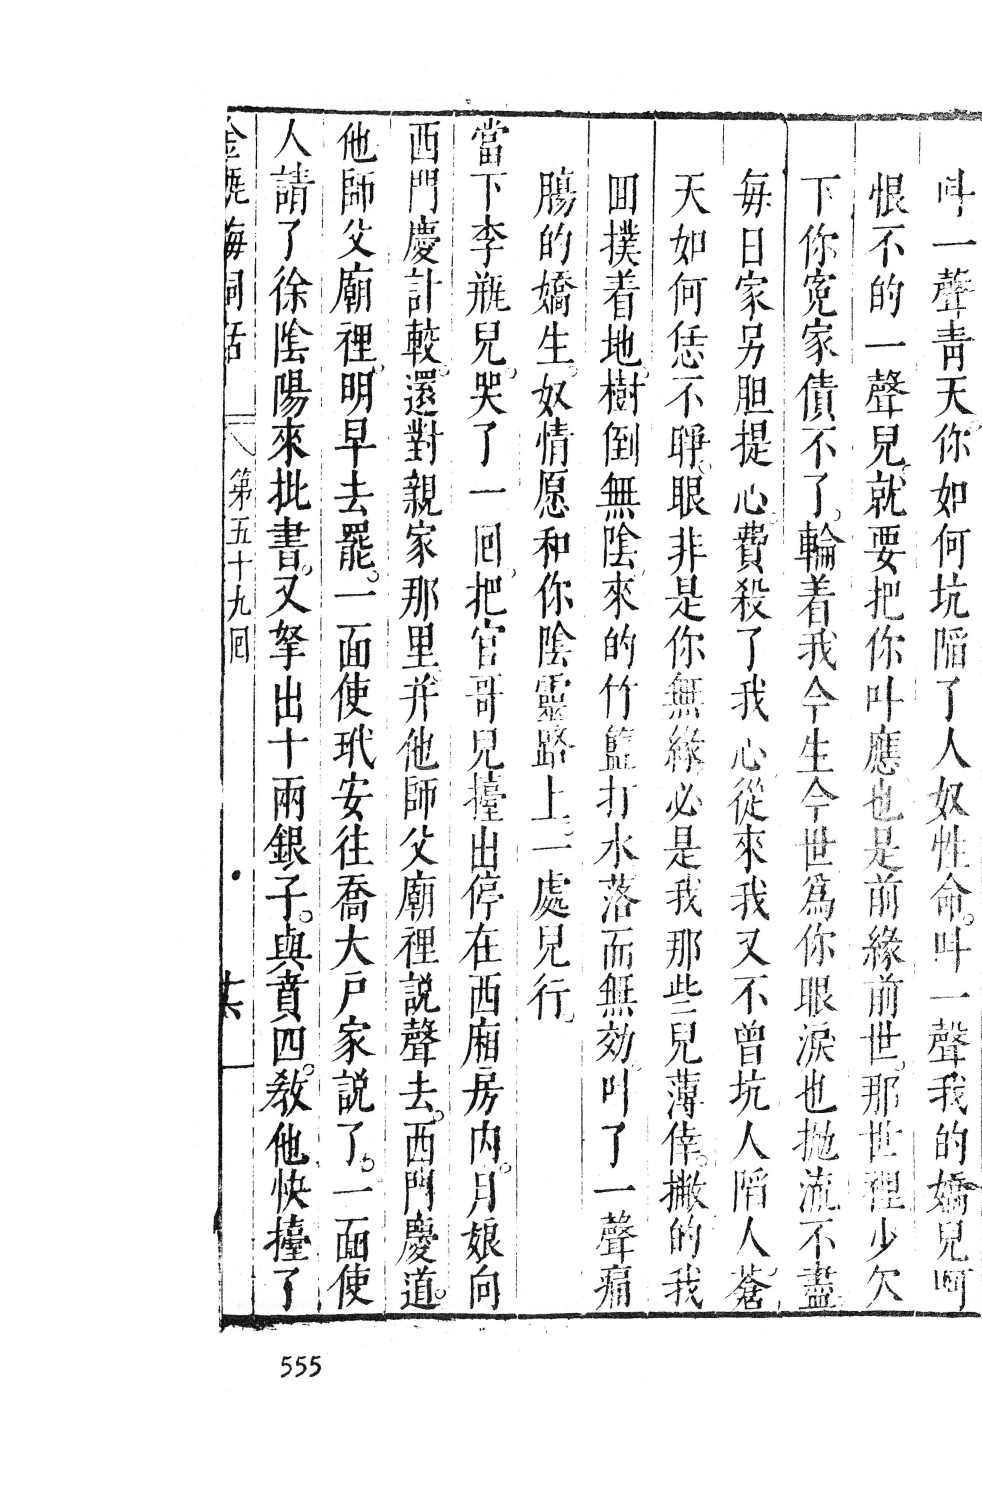 叫一聲青天。你如何坑陷了人奴性命。叫一聲我的嬌兒呵
恨不的一聲兒。就要把你叫應也是前緣前世。那世裡少欠
下你寃家債不了。輪着我今生今世爲你眼淚也抛流不盡
每日家另胆提心。費殺了我心從來我又不曾坑人陷人。蒼
天如何恁不睜。眼非是你無緣必是我那些兒薄倖。撇的我
囬撲着地。樹倒無陰來的竹籃打水落而無効叫了一聲痛
膓的嬌生。奴情愿和你陰靈路上。一處兒行。
當下李瓶兒。哭了一囘。把官哥兒擡出停在西廂房内。月娘向
西門慶計較。還對親家那里。并他師父廟裡説聲去。西門慶道。
他師父廟裡。明早去罷。一面使玳安往喬大戶家説了。一面使
人請了徐陰陽來批書。又拏出十兩銀子。與賁四。教他快擡了
金瓶梅詞話
第五十九囘
555